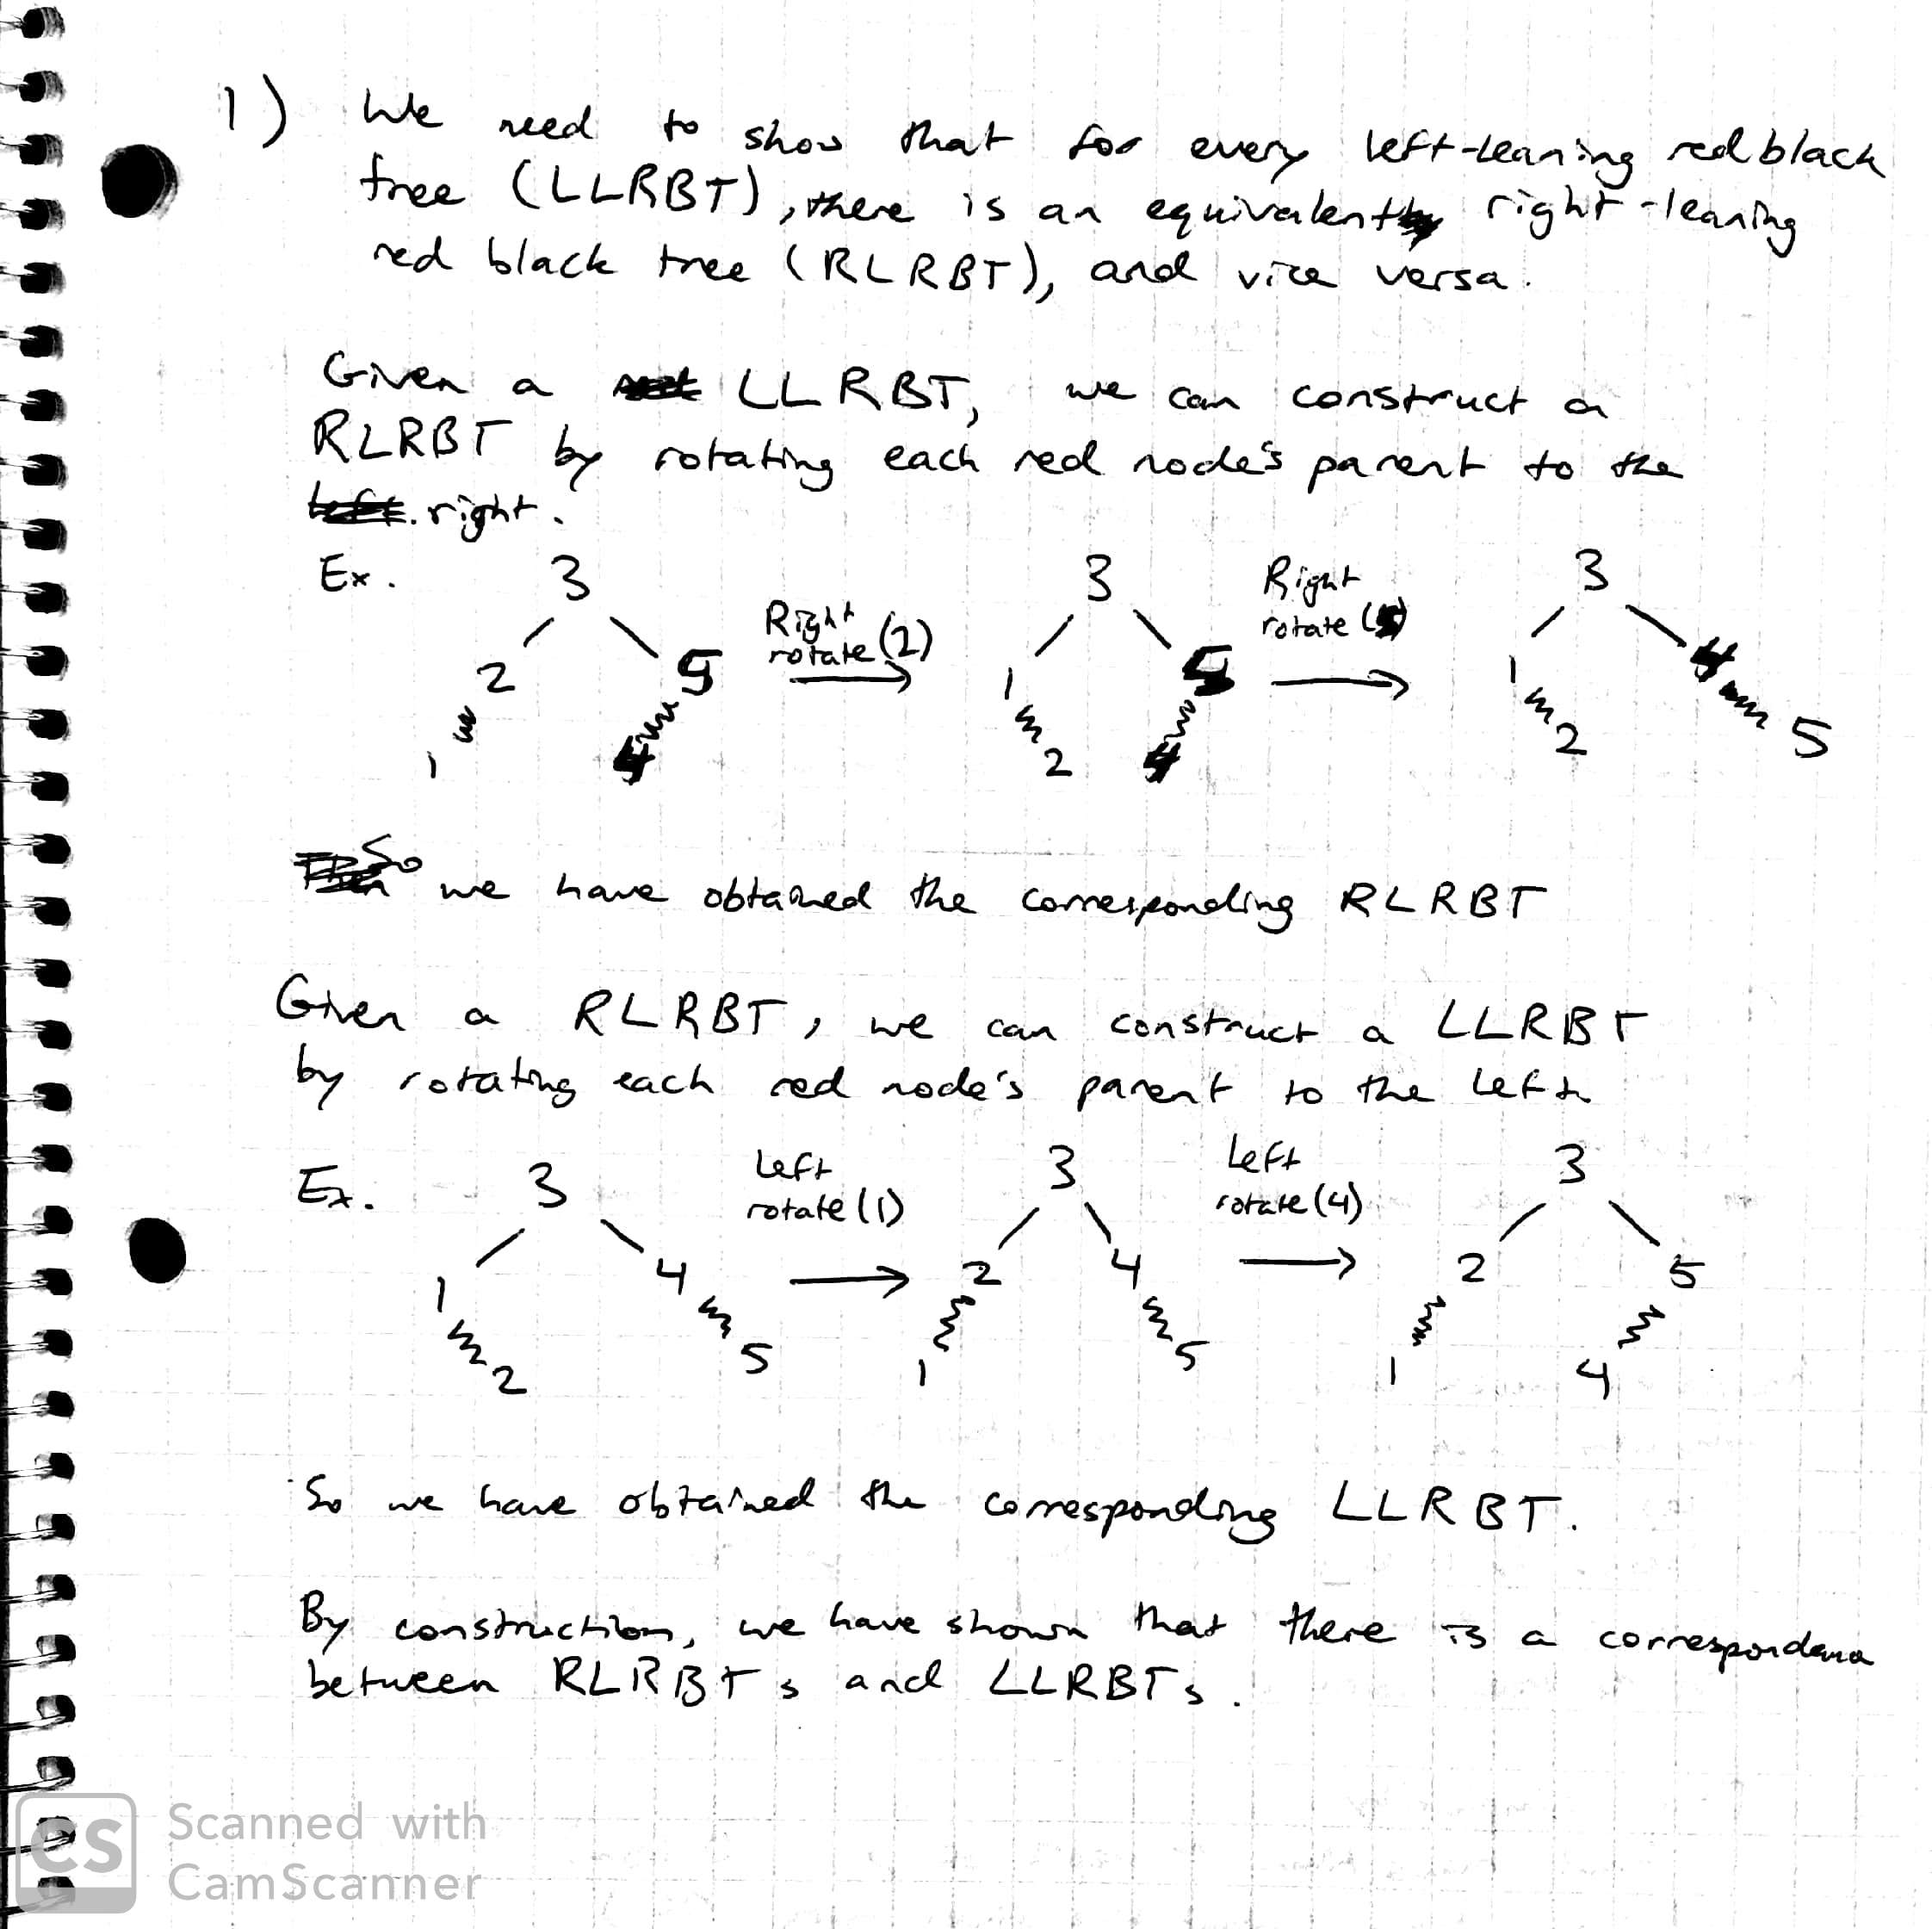 1) We need to show that for every left-leaning red black
tree (LLRBT), there is an equivalent right-leaning
red black tree (RLRBT), and vice versa.
Given a LLRBT, we can construct a
RLRBT by rotating each red node's parent to the
right.
Ex.
3
2 5
1 4
Right
rotate (2)
3
1 5
2 4
Right
rotate (5)
3
1 4
2 5
So we have obtained the corresponding RLRBT
Given a RLRBT, we can construct a LLRBT
by rotating each red node's parent to the left
Ex.
3
1 4
2 5
Left
rotate (1)
3
2 4
1 5
Left
rotate (4)
3
2 5
1 4
So we have obtained the corresponding LLRBT.
By construction, we have shown that there is a correspondence
between RLRBTs and LLRBTs.
CS Scanned with
CamScanner